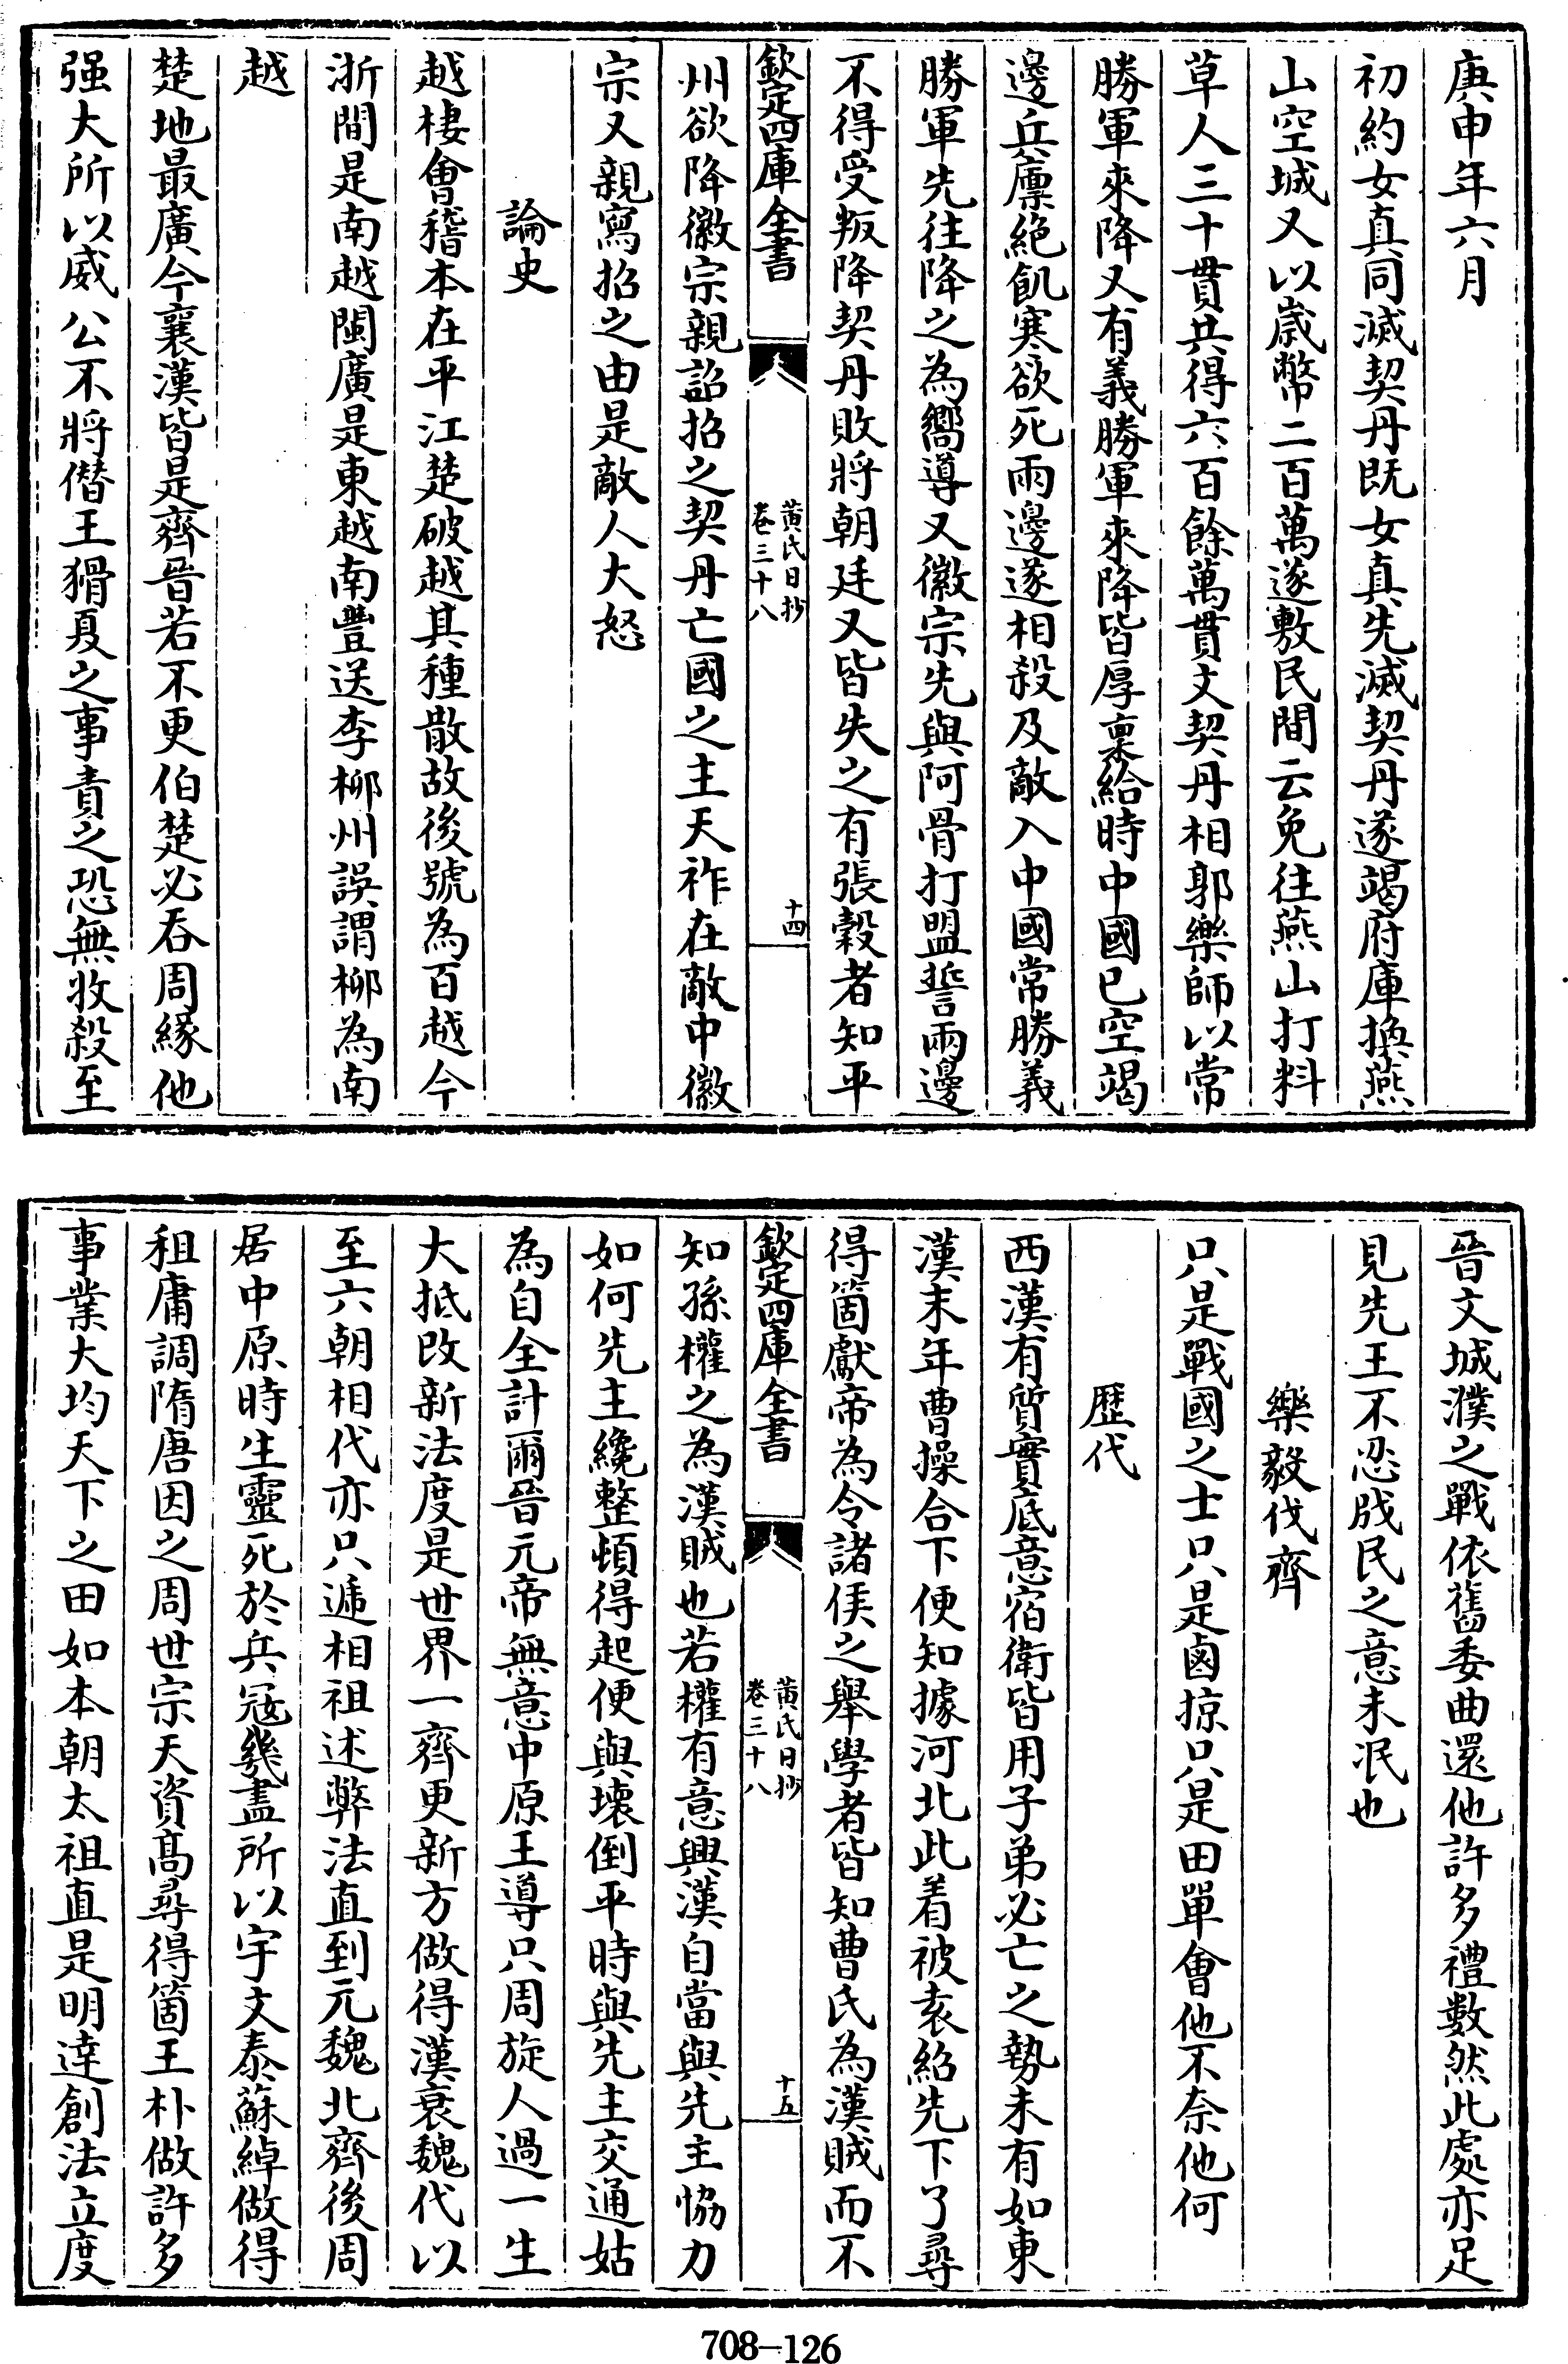 庚申年六月
初約女真同滅契丹既女真先滅契丹遂竭府庫換燕
山空城又以歳幣二百萬遂敷民間云免往燕山打料
草人三十貫共得六百餘萬貫文契丹相郭樂師以常
勝軍來降又有義勝軍來降皆厚稟給時中國已空竭
邊兵廪絶飢寒欲死兩邊遂相殺及敵入中國常勝義
勝軍先往降之為嚮導又徽宗先與阿骨打盟誓兩邊
不得受叛降契丹敗將朝廷又皆失之有張瑴者知平
欽定四庫全書
黄氏日抄
卷三十八
十四
州欲降徽宗親詔招之契丹亡國之主天祚在敵中徽
宗又親寫招之由是敵人大怒
論史
越棲會稽本在平江楚破越其種散故後號為百越今
浙間是南越閩廣是東越南豐送李柳州誤謂柳為南
越
楚地最廣今襄漢皆是齊晉若不更伯楚必吞周緣他
强大所以威公不將僭王猾夏之事責之恐無收殺至
晉文城濮之戰依舊委曲還他許多禮數然此處亦足
見先王不忍戕民之意未泯也
樂毅伐齊
只是戰國之士只是鹵掠只是田單會他不奈他何
歷代
西漢有質實底意宿衛皆用子弟必亡之勢未有如東
漢末年曹操合下便知據河北此着被袁紹先下了尋
得箇獻帝為令諸侯之舉學者皆知曹氏為漢賊而不
欽定四庫全書
黄氏日抄
卷三十八
十五
知孫權之為漢賊也若權有意興漢自當與先主恊力
如何先主纔整頓得起便與壞倒平時與先主交通姑
為自全計爾晉元帝無意中原王導只周旋人過一生
大抵改新法度是世界一齊更新方做得漢衰魏代以
至六朝相代亦只逓相祖述弊法直到元魏北齊後周
居中原時生靈死於兵寇幾盡所以宇文泰蘇綽做得
租庸調隋唐因之周世宗天資髙尋得箇王朴做許多
事業大均天下之田如本朝太祖直是明達創法立度
708-126